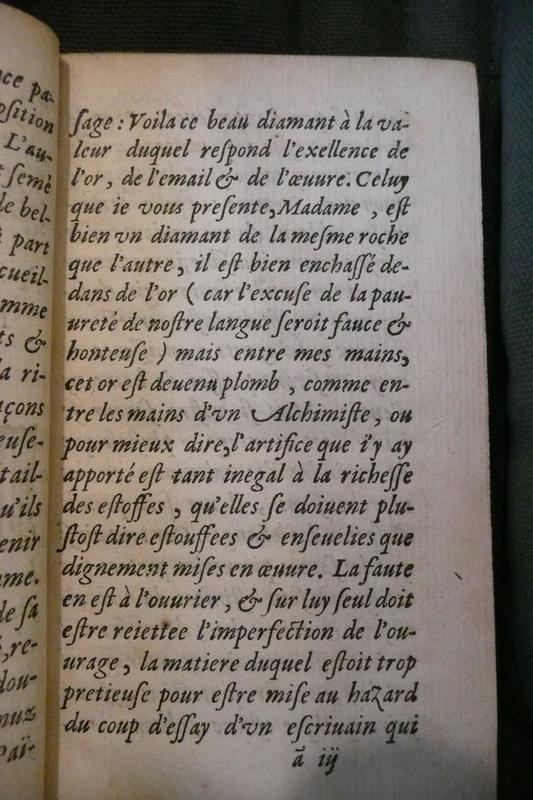 nce pa-
osition
L'au-
t semé
de bel-
part
cueil-
mme
ts &
a ri-
açons
euse-
tail-
u'ils
enir
me.
de sa
,re-
dou-
nuz
Paï-
sage : Voila ce beau diamant à la va-
leur duquel respond l'exellence de
l'or, de l'email & de l'œuure. Celuy
que ie vous presente, Madame, est
bien vn diamant de la mesme roche
que l'autre, il est bien enchassé de-
dans de l'or ( car l'excuse de la pau-
ureté de nostre langue seroit fauce &
honteuse ) mais entre mes mains,
cet or est deuenu plomb, comme en-
tre les mains d'vn Alchimiste, ou
pour mieux dire, l'artifice que i'y ay
apporté est tant inegal à la richesse
des estoffes, qu'elles se doiuent plu-
stost dire estouffees & enseuelies que
dignement mises en œuure. La faute
en est à l'ouurier, & sur luy seul doit
estre reiettee l'imperfection de l'ou-
urage, la matiere duquel estoit trop
pretieuse pour estre mise au hazard
du coup d'essay d'vn escriuain qui
ã iij